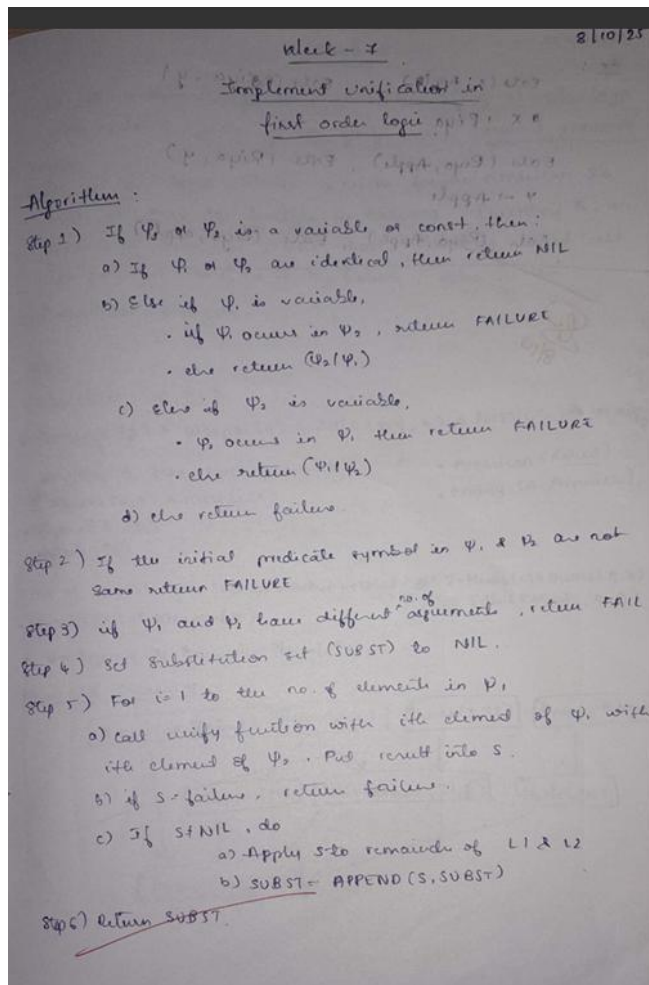 8/10/25
Week - 7
Implement unification in
first order logic
Algorithm :
Step 1) If Ψ₁ or Ψ₂ is a variable or const, then:
a) If Ψ₁ or Ψ₂ are identical, then return NIL
b) Else if Ψ₁ is variable,
• if Ψ₁ occurs in Ψ₂, return FAILURE
• else return (Ψ₂/Ψ₁)
c) Else if Ψ₂ is variable,
• Ψ₂ occurs in Ψ₁ then return FAILURE
• else return (Ψ₁/Ψ₂)
d) else return failure
Step 2) If the initial predicate symbol in Ψ₁ & Ψ₂ are not
same return FAILURE
Step 3) if Ψ₁ and Ψ₂ have different no. of arguments, return FAIL
Step 4) Set Substitution set (SUBST) to NIL.
Step 5) For i=1 to the no. of elements in Ψ₁
a) call unify function with ith element of Ψ₁ with
ith element of Ψ₂. Put result into S.
b) if S = failure, return failure.
c) If S ≠ NIL, do
a) Apply S to remainder of L1 & L2
b) SUBST = APPEND (S, SUBST)
Step 6) Return SUBST.